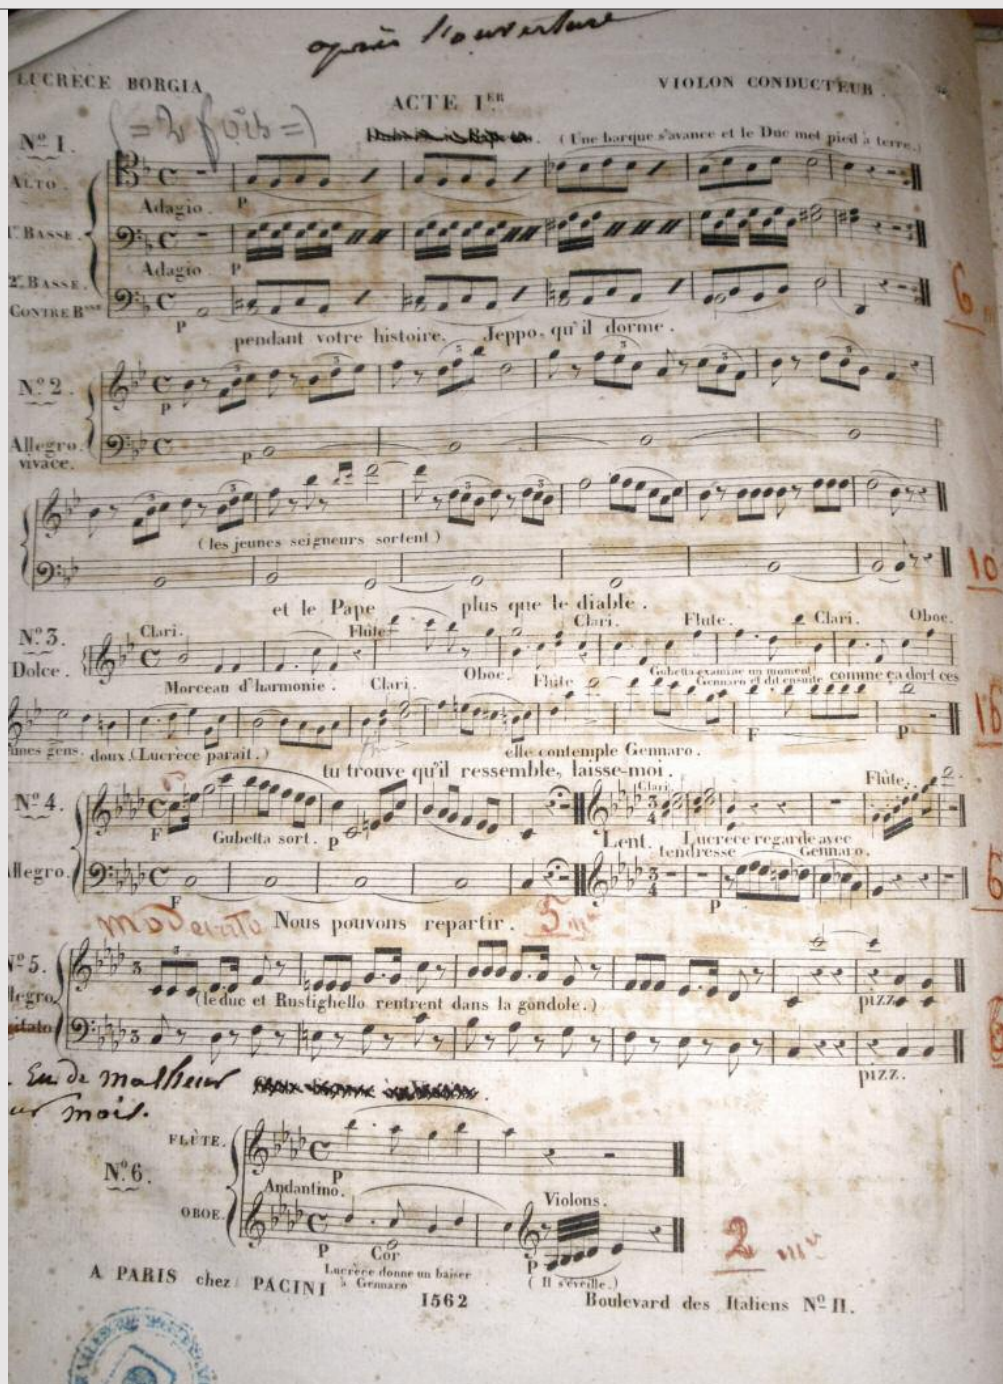 après l'ouverture
LUCRÈCE BORGIA
VIOLON CONDUCTEUR.
ACTE I.ER
(=2 fois=)
Nº 1.
(Une barque s'avance et le Duc met pied à terre.)
ALTO.
Adagio. P
BASSE.
Adagio. P
2e BASSE.
CONTRE B
P
6
pendant votre histoire, Jeppo, qu'il dorme.
Nº 2
3 3 3 3 3 3
P
Allegro vivace.
P
3 3 3 3
(les jeunes seigneurs sortent)
10
et le Pape plus que le diable.
Nº 3.
Dolce.
Clari. Flûte Clari. Flute. Clari. Oboe.
Morceau d'harmonie. Clari. Oboe. Flûte
Gubetta examine un moment Gennaro et dit ensuite comme ça dort ces
gens. doux (Lucrèce paraît.) elle contemple Gennaro. F P
tu trouve qu'il ressemble, laisse-moi.
Nº 4.
Clari. Flûte.
F Gubetta sort. P
Lent. Lucrèce regarde avec tendresse Gennaro.
3 4
3 4
P
F
6
moderato Nous pouvons repartir. 5
Nº 5.
3 3
(le duc et Rustighello rentrent dans la gondole.) pizz.
3
pizz.
En de malheur
mois.
FLÛTE.
Nº 6.
P
Andantino.
OBOE.
Violons.
P Cor P
Lucrèce donne un baiser à Gennaro
(Il s'éveille.)
2
A PARIS chez PACINI
1562
Boulevard des Italiens Nº II.